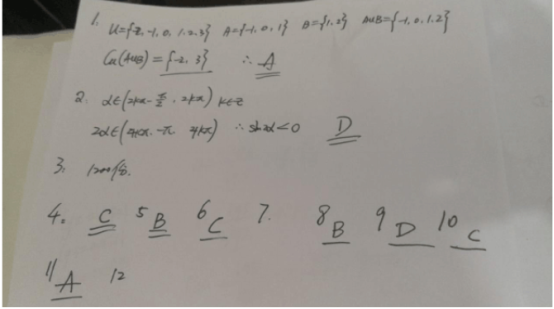 1. U={-2,-1,0,1,2,3} A={-1,0,1} B={1,2} A∪B={-1,0,1,2}
Cu(A∪B)={-2,3} ∴ A
2. α∈(2kπ-π/2,2kπ) k∈Z
2α∈(4kπ-π,4kπ) ∴sin2α<0 D
3.
4. C 5 B 6 C 7. 8 B 9 D 10 C
11 A 12